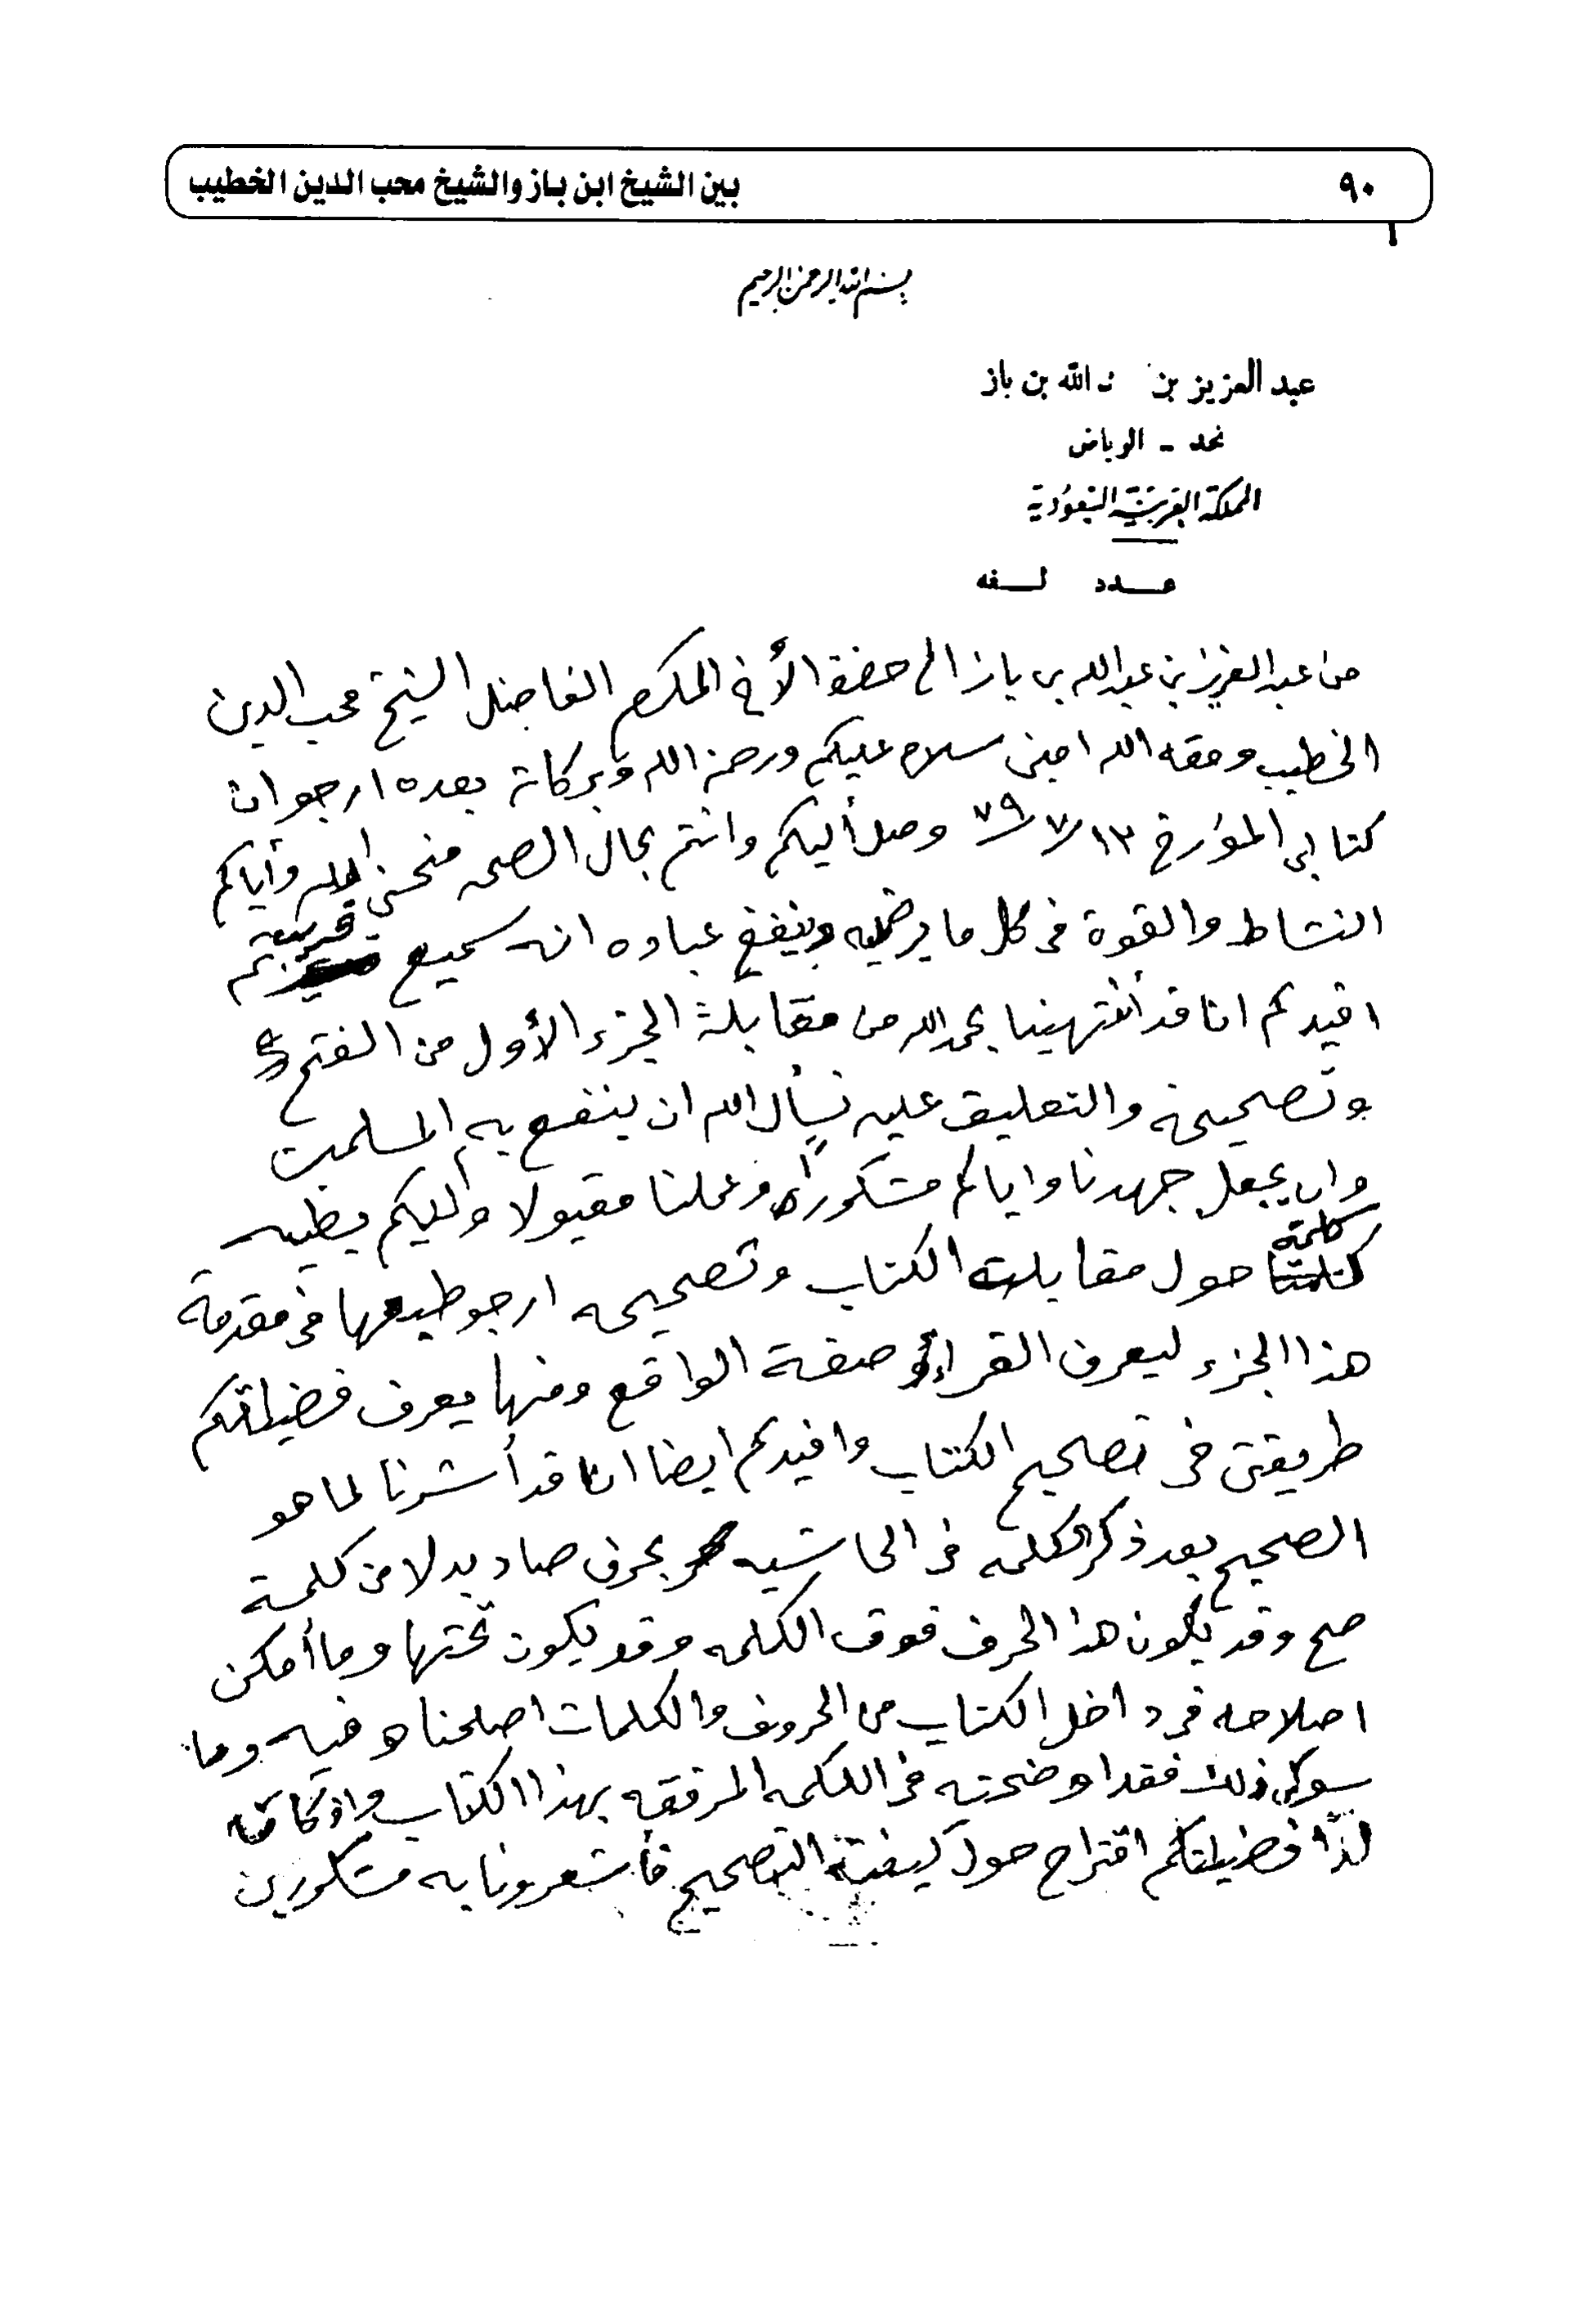 ٩٠
بين الشيخ ابن باز والشيخ محب الدين الخطيب
بسم الله الرحمن الرحيم
عبد العزيز بن الله بن باز
نجد - الرياض
المملكة العربية السعودية
عدد لفه
من عبد العزيز بن عبد الله بن باز الى حضرة الأخ المكرم الفاضل الشيخ محب الدين
الخطيب وفقه الله امين سلام عليكم ورحمة الله وبركاته بعده ارجو ان
كتابي المؤرخ ١٣/٧/٧٩ وصل أليكم وانتم بحال الصحه منحني الله وأياكم
النشاط والقوة في كل ما يرضيه وينفع عباده انه سميع قريب
افيدكم انا قد أنتهينا بحمد الله من مقابلة الجزء الأول من الفتح
وتصحيحه والتعليق عليه نسأل الله ان ينفع به المسلمين
وان يجعل جهدنا واياكم مشكوراً وعملنا مقبولا واليكم بطيه
كلمة حول مقابلة الكتاب وتصحيحه ارجو طبعها في مقدمة
هذا الجزء ليعرف القراء صفة الواقع ومنها يعرف فضيلتكم
طريقتي في تصحيح الكتاب وافيدكم ايضا انا قد أشرنا لما هو
الصحيح بعد ذكر الكلمه في الحاشيه بحرف صاد بدلا من كلمة
صح وقد يكون هذا الحرف فوق الكلمه وقد يكون تحتها وما أمكن
اصلاحه في داخل الكتاب من الحروف والكلمات اصلحناه فيه وما
سوى ذلك فقد اوضحته في الكلمه المرفقه بهذا الكتاب واذ كان
لذا فضيلتكم اقتراح حول كيفية التصحيح فأشعرونا به مشكورين